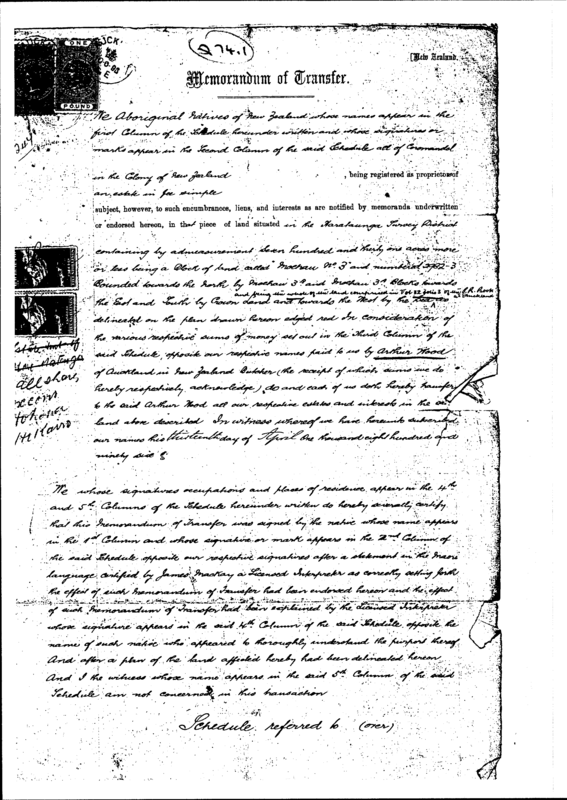 Q 74.1
[New Zealand.
ONE
POUND
Memorandum of Transfer.
We Aboriginal Natives of New Zealand whose names appear in the
first Column of the Schedule hereunder written and whose signatures or
marks appear in the Second Column of the said Schedule all of Coromandel
in the Colony of New Zealand , being registered as proprietors of
an estate in fee simple
subject, however, to such encumbrances, liens, and interests as are notified by memoranda underwritten
or endorsed hereon, in that piece of land situated in the Harataunga Survey District
containing by admeasurement Seven hundred and thirty one acres more
or less being a Block of land called "Moehau No. 3" and numbered
Bounded towards the North by Moehau and Moehau Blocks towards
the East and South by Crown land and towards the West by the
delineated on the plan drawn hereon edged red In consideration of
the various respective sums of money set out in the Third Column of the
said Schedule, opposite our respective names paid to us by Arthur Wood
of Auckland in New Zealand Butcher (the receipt of which sums we do
hereby respectively acknowledge) do and each of us doth hereby transfer
to the said Arthur Wood all our respective estates and interests in the said
land above described In witness whereof we have hereunto subscribed
our names this thirteenth day of April One thousand eight hundred and
ninety six
all shares
to
We whose signatures occupations and places of residence appear in the 4th
and 5th Columns of the Schedule hereunder written do hereby severally certify
that this Memorandum of Transfer was signed by the native whose name appears
in the 1st Column and whose signature or mark appears in the 2nd Column of
the said Schedule opposite our respective signatures after a statement in the Maori
language certified by James Mackay a Licensed Interpreter as correctly setting forth
the effect of such Memorandum of Transfer had been endorsed hereon and the effect
of such Memorandum of Transfer had been explained by the Licensed Interpreter
whose signature appears in the said 4th Column of the said Schedule opposite the
name of such native who appeared to thoroughly understand the purport thereof
And after a plan of the land affected hereby had been delineated hereon
And I the witness whose name appears in the said 5th Column of the said
Schedule am not concerned in this transaction
Schedule referred to (over)